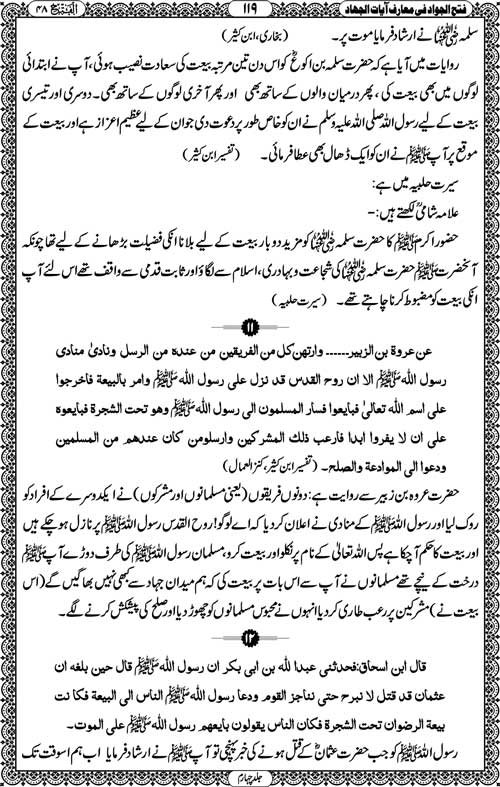 فتح الجواد فی معارف آیات الجہاد ۱۱۹ الفتح ۴۸
سلمہ رضی اللہ عنہ نے ارشاد فرمایا موت پر۔ (بخاری، ابن کثیر)
روایات میں آیا ہے کہ حضرت سلمہ بن اکوعؓ کو اس دن تین مرتبہ بیعت کی سعادت نصیب ہوئی، آپ نے ابتدائی
لوگوں میں بھی بیعت کی، پھر درمیان والوں کے ساتھ بھی اور پھر آخری لوگوں کے ساتھ بھی۔ دوسری اور تیسری
بیعت کے لیے رسول اللہ صلی اللہ علیہ وسلم نے ان کو خاص طور پر دعوت دی جو ان کے لیے عظیم اعزاز ہے اور بیعت کے
موقع پر آپ ﷺ نے ان کو ایک ڈھال بھی عطا فرمائی۔ (تفسیر ابن کثیر)
سیرت حلبیہ میں ہے:
علامہ شامیؒ لکھتے ہیں:-
حضور اکرم ﷺ کا حضرت سلمہ رضی اللہ عنہ کو مزید دو بار بیعت کے لیے بلانا انکی فضیلت بڑھانے کے لیے تھا چونکہ
آنحضرت ﷺ حضرت سلمہ رضی اللہ عنہ کی شجاعت و بہادری، اسلام سے لگاؤ اور ثابت قدمی سے واقف تھے اس لئے آپ
انکی بیعت کو مضبوط کرنا چاہتے تھے۔ (سیرت حلبیہ)
۱۱
عن عروة بن الزبیر ------ وارتهن كل من الفريقين من عنده من الرسل ونادىٰ منادى
رسول الله ﷺ الا ان روح القدس قد نزل على رسول الله ﷺ وامر بالبيعة فاخرجوا
على اسم الله تعالىٰ فبايعوا فسار المسلمون الى رسول الله ﷺ وهو تحت الشجرة فبايعوه
على ان لا يفروا ابدا فارعب ذلك المشركين وارسلومن كان عندهم من المسلمين
ودعوا الى الموادعة والصلح۔ (تفسیر ابن کثیر، کنز العمال)
حضرت عروہ بن زبیر سے روایت ہے: دونوں فریقوں (یعنی مسلمانوں اور مشرکوں) نے ایکدوسرے کے افراد کو
روک لیا اور رسول اللہ ﷺ کے منادی نے اعلان کر دیا کہ اے لوگو! روح القدس رسول اللہ ﷺ پر نازل ہو چکے ہیں
اور بیعت کا حکم آچکا ہے پس اللہ تعالیٰ کے نام پر نکلو اور بیعت کرو، مسلمان رسول اللہ ﷺ کی طرف دوڑے آپ ﷺ
درخت کے نیچے تھے مسلمانوں نے آپ سے اس بات پر بیعت کی کہ ہم میدان جہاد سے کبھی نہیں بھاگیں گے (اس
بیعت نے) مشرکین پر رعب طاری کر دیا انہوں نے محبوس مسلمانوں کو چھوڑ دیا اور صلح کی پیشکش کرنے لگے۔
۱۲
قال ابن اسحاق: فحدثنى عبدا لله بن ابى بكر ان رسول الله ﷺ قال حين بلغه ان
عثمان قد قتل لا نبرح حتى نناجز القوم ودعا رسول الله ﷺ الناس الى البيعة فكا نت
بيعة الرضوان تحت الشجرة فكان الناس يقولون بايعهم رسول الله ﷺ على الموت۔
رسول اللہ ﷺ کو جب حضرت عثمانؓ کے قتل ہونے کی خبر پہنچی تو آپ ﷺ نے ارشاد فرمایا اب ہم اسوقت تک
جلد چہارم